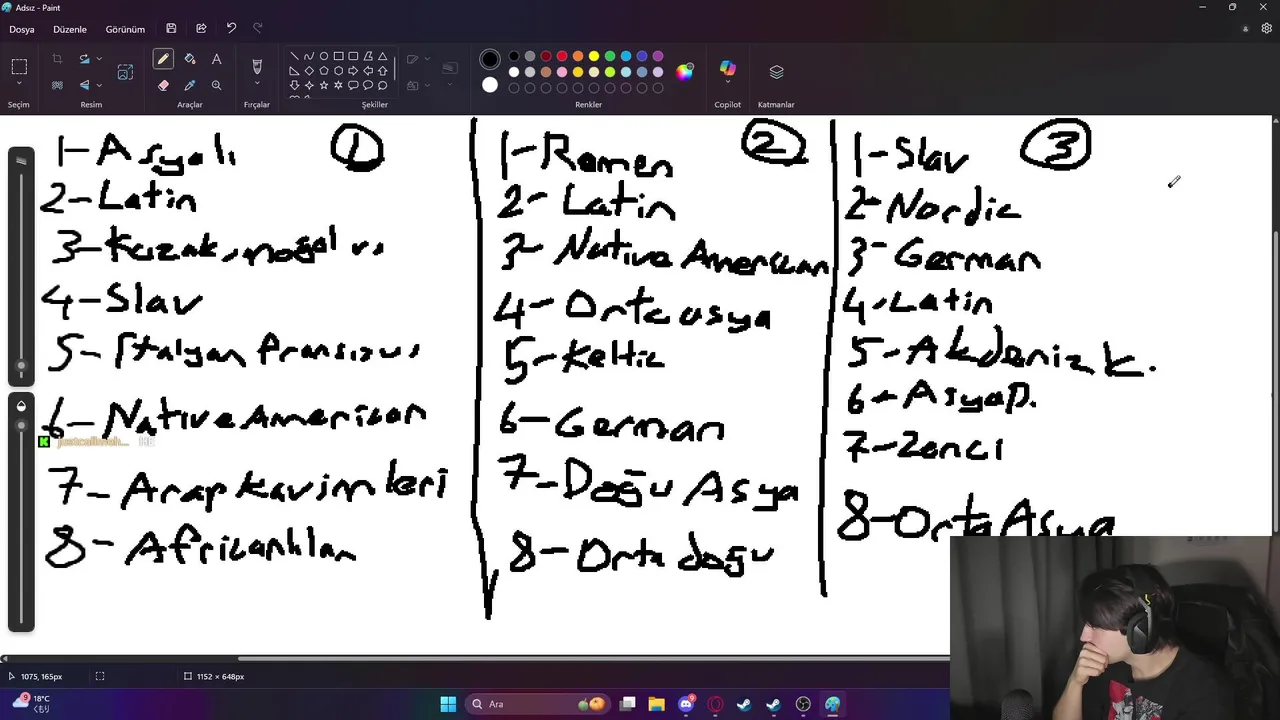 Adsız - Paint
Dosya
Düzenle
Görünüm
Seçim
Resim
Araçlar
Fırçalar
Şekiller
Renkler
Copilot
Katmanlar
1-Asyalı
①
2-Latin
3-Kazak, moğol vs
4-Slav
5-İtalyan Fransız vs,
6-Native American
justcallmeh... HE
7-Arap kavimleri
8-Africanlılar
1-Romen
②
2-Latin
3-Native American
4-Orta asya
5-Keltic
6-German
7-Doğu Asya
8-Orta doğu
1-Slav
③
2-Nordic
3-German
4-Latin
5-Akdeniz k.
6-Asyap.
7-Zenci
8-Orta Asya
1075, 165px
1152 × 648px
9
18°C
くもり
Ara
9